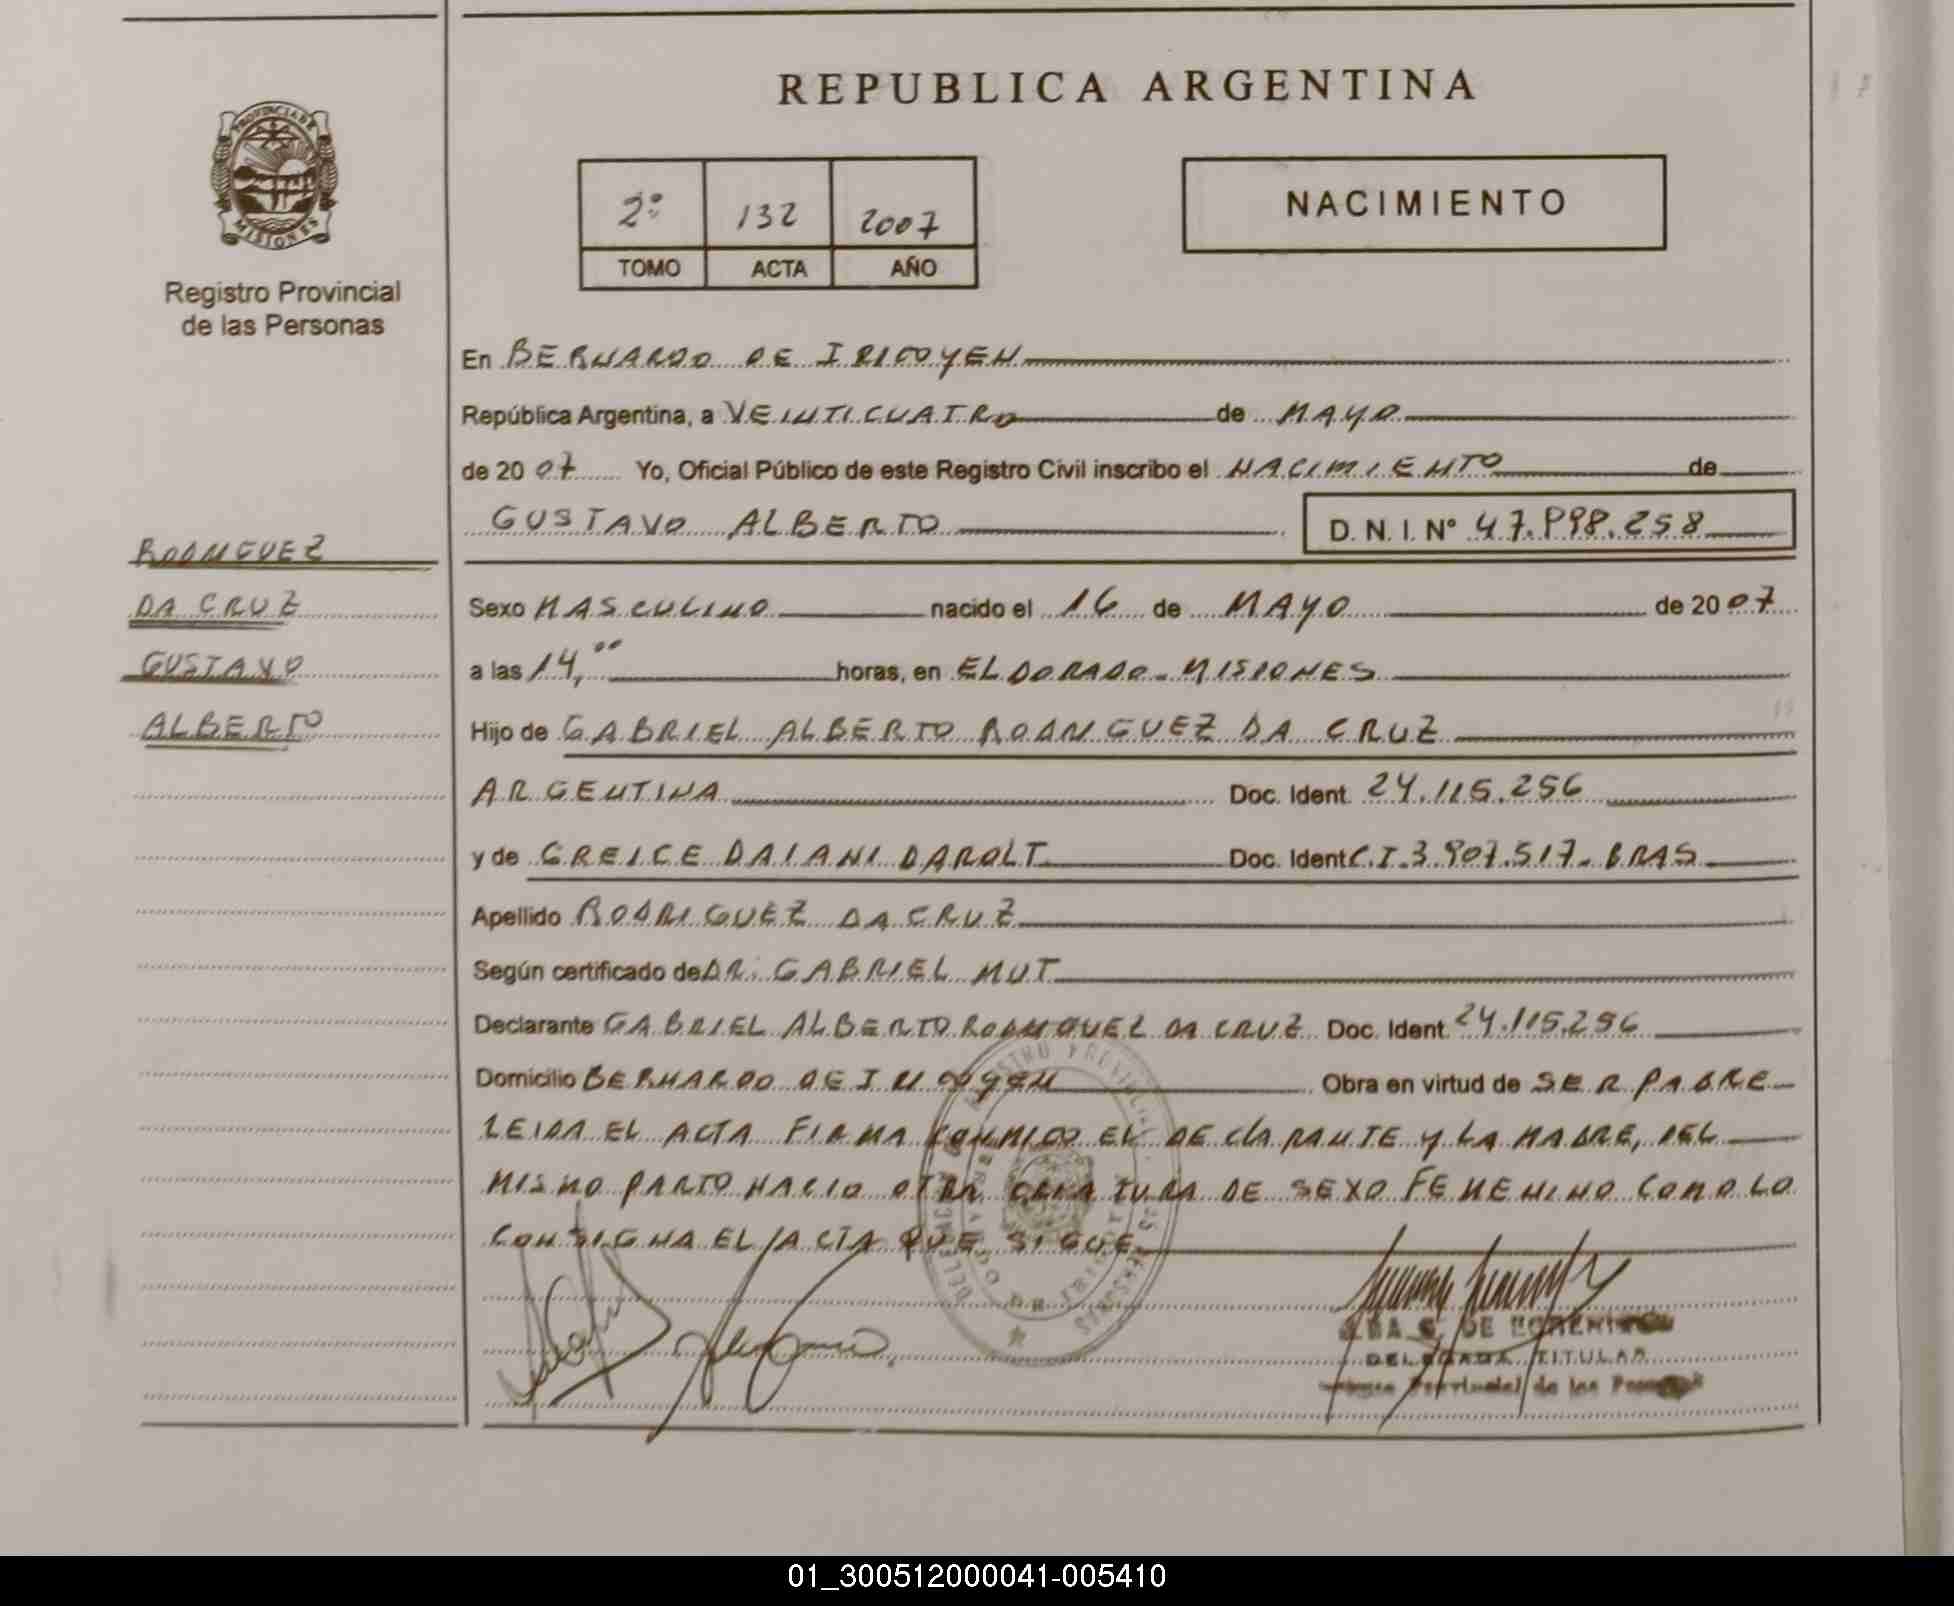 REPUBLICA ARGENTINA
PROVINCIA DE
MISIONES
Registro Provincial
de las Personas
2º 132 2007
TOMO ACTA AÑO
NACIMIENTO
En BERNARDO DE IRIGOYEN
República Argentina, a VEINTICUATRO de MAYO
de 2007 Yo, Oficial Público de este Registro Civil inscribo el NACIMIENTO de
GUSTAVO ALBERTO D. N. I. Nº 47.998.258
RODRIGUEZ
DA CRUZ
GUSTAVO
ALBERTO
Sexo MASCULINO nacido el 16 de MAYO de 2007
a las 14,00 horas, en ELDORADO - MISIONES
Hijo de GABRIEL ALBERTO RODRIGUEZ DA CRUZ
ARGENTINA Doc. Ident. 24.115.256
y de GREICE DAIANI DAROLT Doc. Ident C.I. 3.907.517- BRAS
Apellido RODRIGUEZ DA CRUZ
Según certificado de DR. GABRIEL MUT
Declarante GABRIEL ALBERTO RODRIGUEZ DA CRUZ Doc. Ident. 24.115.256
Domicilio BERNARDO DE IRIGOYEN Obra en virtud de SER PADRE
LEIDA EL ACTA FIRMA CONMIGO EL DECLARANTE Y LA MADRE, DEL
MISMO PARTO NACIO OTRA CRIATURA DE SEXO FEMENINO COMO LO
CONSIGNA EL ACTA QUE SIGUE
DE
DELEGADA TITULAR
Provincial de las
01_300512000041-005410